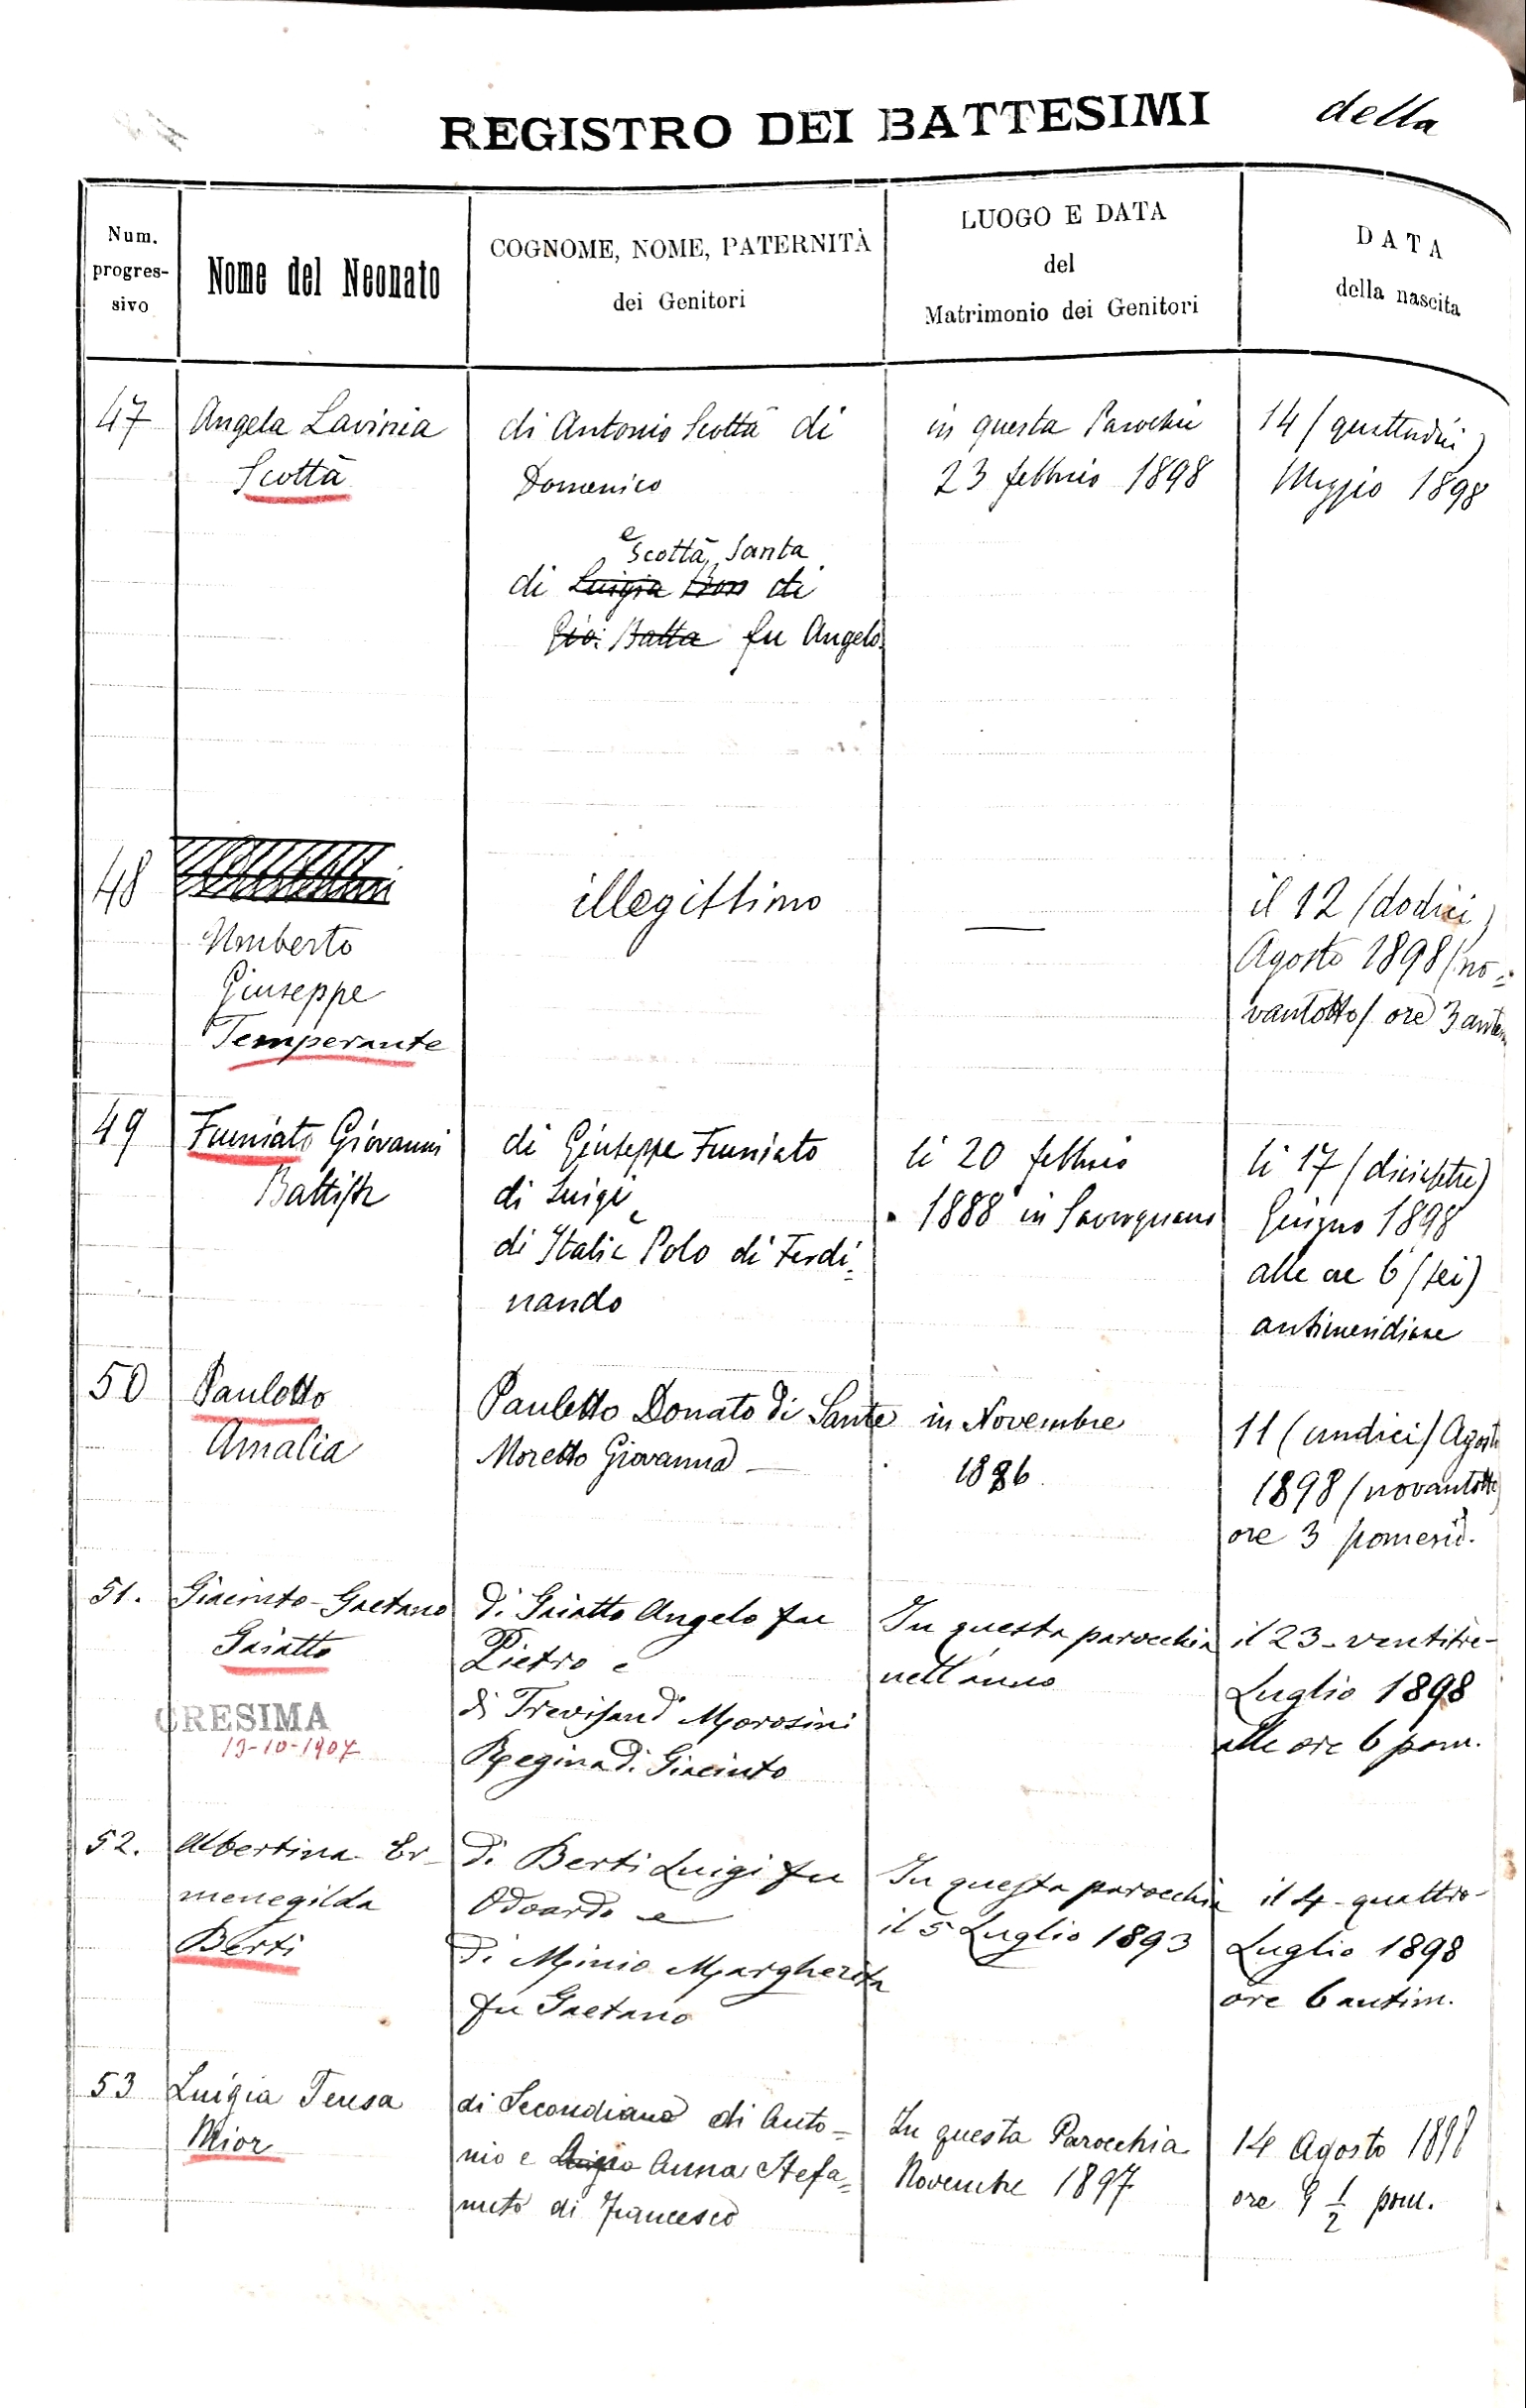 REGISTRO DEI BATTESIMI della
Num.
progres-
sivo
Nome del Neonato
COGNOME, NOME, PATERNITÀ
dei Genitori
LUOGO E DATA
del
Matrimonio dei Genitori
DATA
della nascita
47
Angela Lavinia
Scottà
di Antonio Scottà di
Domenico
e
Scottà, Santa
di Luigia Bon di
Gio: Batta fu Angelo.
in questa Parochia
23 febbraio 1898
14 (quattordici)
Maggio 1898
48
Umberto
Giuseppe
Temperante
illegittimo
il 12 (dodici)
Agosto 1898 (no=
vantotto) ore 3 antem
49
Fumiato Giovanni
Battista
di Giuseppe Fumiato
di Luigi e
di Italia Polo di Ferdi=
nando
li 20 febbraio
1888 in Savorgnano
li 17 (diciasette)
Giugno 1898
alle ore 6 (sei)
antimeridiane
50
Pauletto
Amalia
Pauletto Donato di Sante
Moretto Giovanna —
in Novembre
1886
11 (undici) Agosto
1898 (novantotto)
ore 3 pomerid.
51.
Giacinto-Gaetano
Gaiatto
CRESIMA
13-10-1907
di Gaiatto Angelo fu
Pietro e
di Trevisan Morosini
Regina di Giacinto
In questa parocchia
nell'anno
il 23 - ventitre -
Luglio 1898
alle ore 6 pom.
52.
Albertina Er-
menegilda
Berti
di Berti Luigi fu
Odoardo e
di Minio Margherita
fu Gaetano
In questa parocchia
il 5 Luglio 1893
il 4 - quattro -
Luglio 1898
ore 6 antim.
53
Luigia Teresa
Mior
di Secondiano di Anto=
nio e Luigia Anna Stefa=
nuto di Francesco
In questa Parocchia
Novembre 1897
14 Agosto 1898
ore 9 1/2 pom.